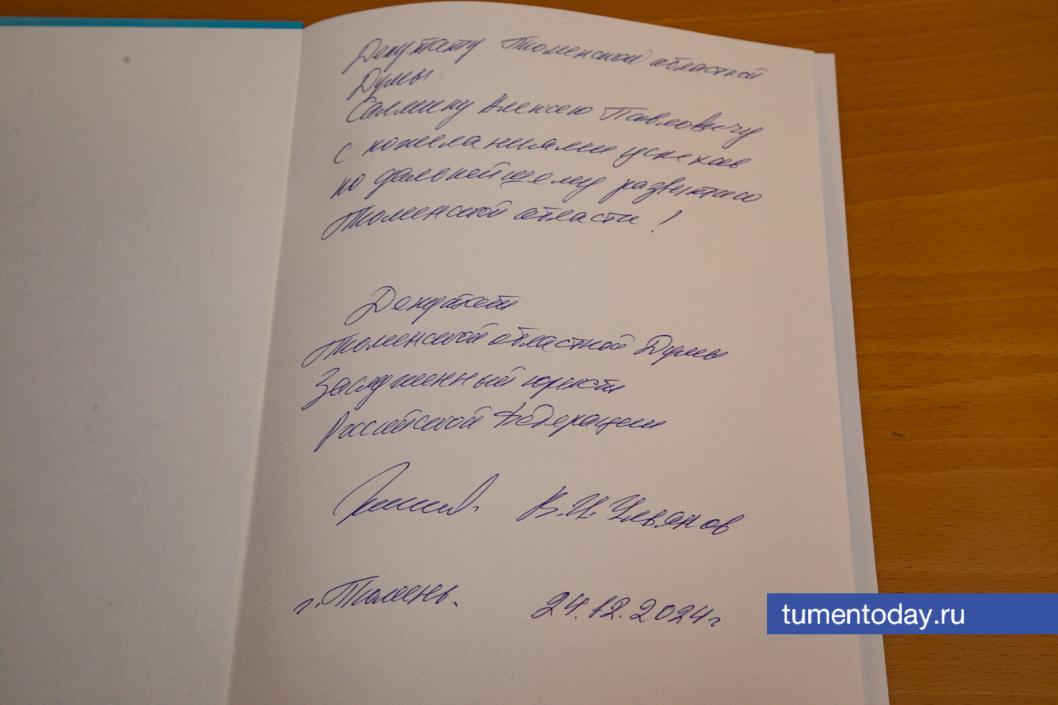 Депутату Тюменской областной
Думы
Салмину Алексею Павловичу
с пожеланиями успехов
по дальнейшему развитию
Тюменской области!
Депутат
Тюменской областной Думы
Заслуженный юрист
Российской Федерации
В.И. Ульянов
г. Тюмень.
24.12.2024г
tumentoday.ru